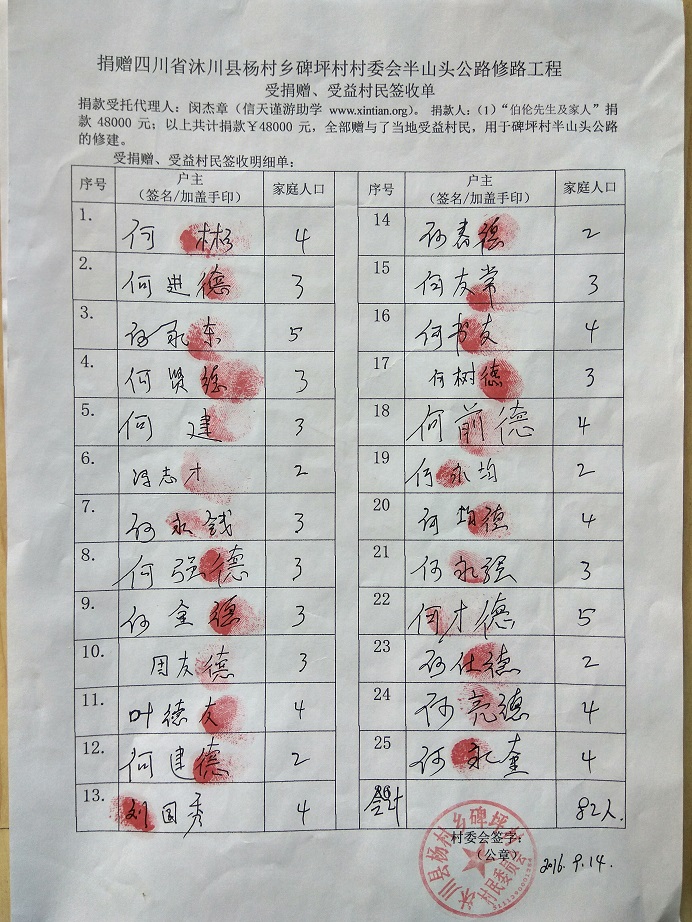 捐赠四川省沐川县杨村乡碑坪村村委会半山头公路修路工程
受捐赠、受益村民签收单
捐款受托代理人：闵杰章（信天谨游助学 www.xintian.org）。 捐款人：（1）“伯伦先生及家人”捐
款 48000 元；以上共计捐款￥48000 元，全部赠与了当地受益村民，用于碑坪村半山头公路
的修建。
受捐赠、受益村民签收明细单：
序号 户主（签名/加盖手印） 家庭人口 序号 户主（签名/加盖手印） 家庭人口
1. 何 彬 4 14 何春德 2
2. 何进德 3 15 何友常 3
3. 何永东 5 16 何书友 4
4. 何贤德 3 17 何树德 3
5. 何 建 3 18 何前德 4
6. 冯志才 2 19 何永均 2
7. 何永钱 3 20 何均德 4
8. 何强德 3 21 何永强 3
9. 何金德 3 22 何才德 5
10. 周友德 3 23 何仕德 2
11. 叶德友 4 24 何亮德 4
12. 何建德 2 25 何永奎 4
13. 刘国秀 4 合计 82人.
村委会签字：
（公章） 2016.9.14.
沐川县杨村乡碑坪村
村民委员会